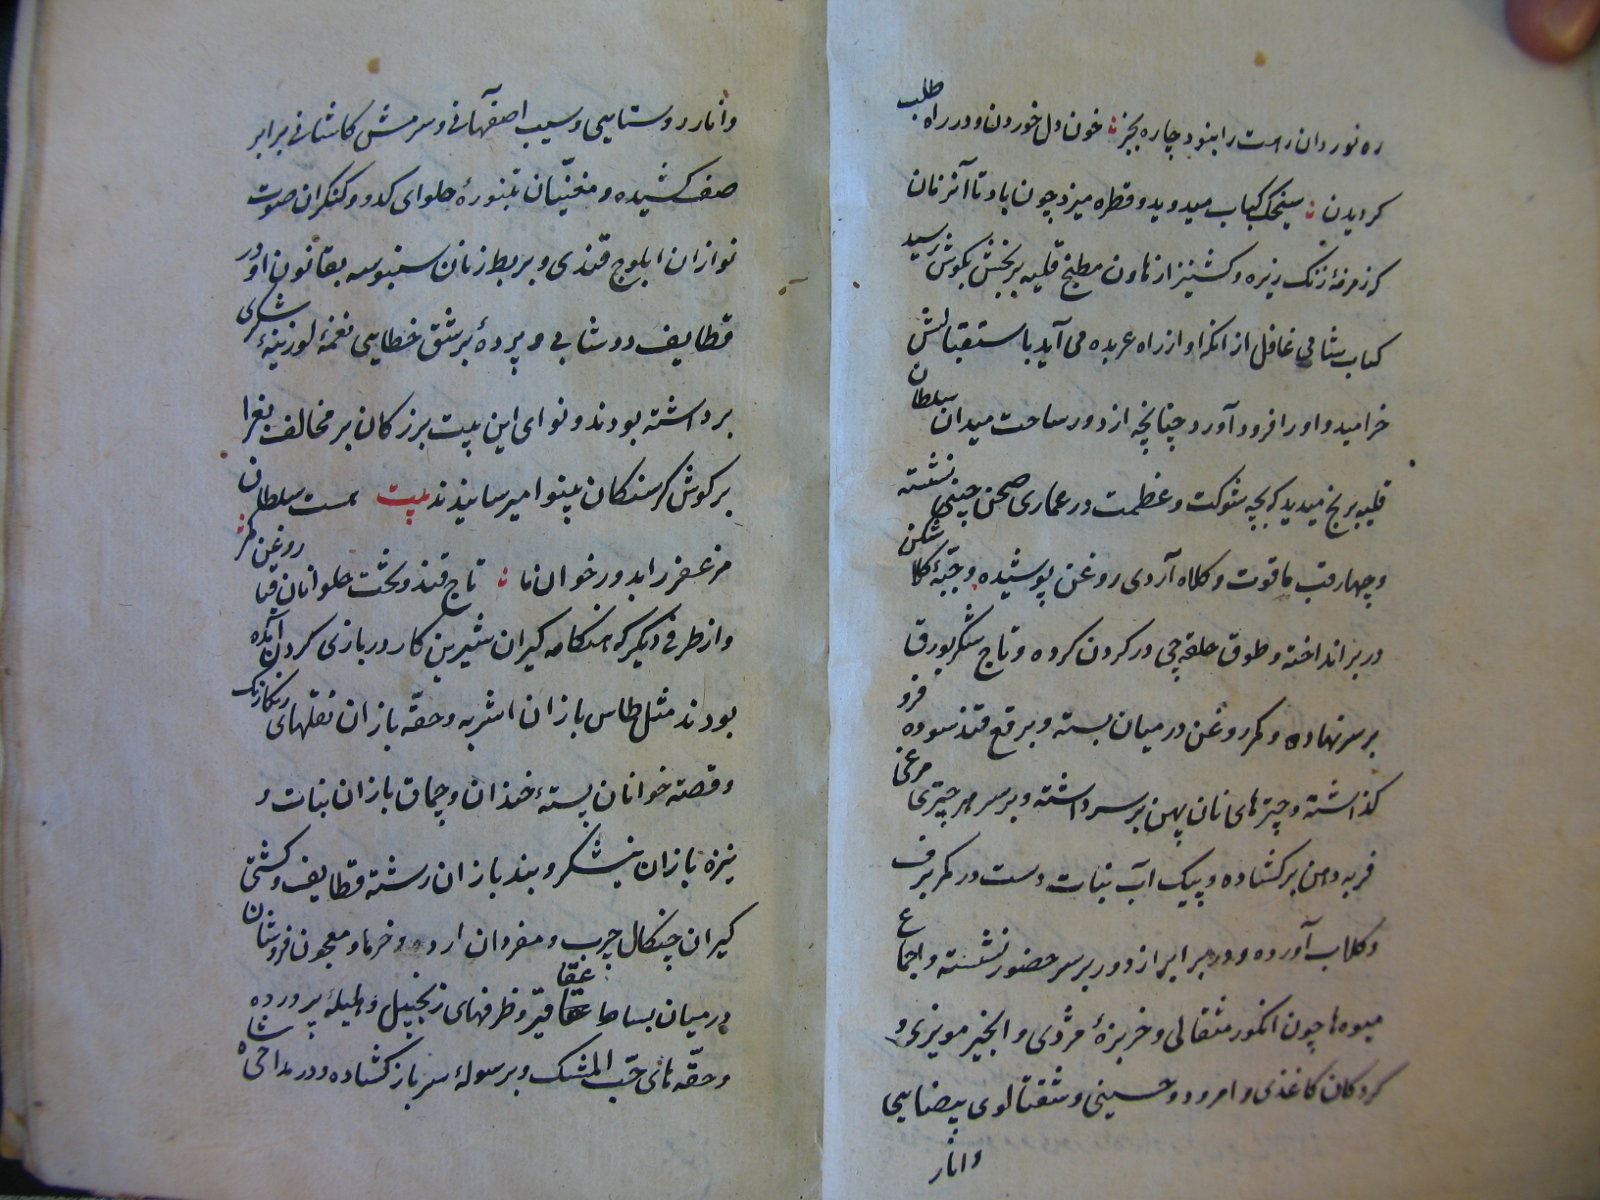 ره نوردان راست را بنود چاره بجز خون دل خوردن و در راه طلب
کردیدن سیخک کباب میدوید و قطره میزد چون باد تا آنزمان
که زمزمهٔ زنک زیره و کشنیز از هاون مطبخ قلیه برنجش بکوش رسید
کباب شامی غافل از انکه او از راه عربده می آید باستقبالش
خرامید و او را فرود آورد چنانچه از دور ساحت میدان سلطان
قلیه برنج میدید که بچه شوکت و عظمت در عماری صحن چینی نشسته
و چهارقب ماقوت و کلاه آردی روغن پوشیده و جبّهٔ کلا شکن
در بر انداخته و طوق حلقه چی در کردن کرده و تاج شکر بورق
بر سر نهاده و کمر روغن در میان بسته و برقع قند سوده فرو
کذاشته و چترهای نان پهن بر سر داشته و بر سر هر چتری مرغی
فربه دامن بر کشاده و پیک آب نبات دست در کمر برف
و کلاب آورده و در برابر از دور بر سر حضور نشسته و اجماع
میوه ها چون انکور مثقالی و خربزهٔ مژدی و انجیر مویزی و
کردکان کاغذی و امرود و حسینی و شفتالوی بیضایی
و انار
و انار روستایی و سیب اصفهانی و سرمش کاشانی برابر
صف کشیده و مغنّیان تنبورهٔ حلوای کدو و کنکران صوت
نوازان ابلوج قندی و بربط زنان سنبوسه بقانون او در
قطایف دوشابی و پردهٔ برشق خطایی نغمهٔ لوزینهٔ شکری
برداشته بودند و نوای این بیت بزرکان بر مخالف بغرا
بر کوش کرسنکان بینوا میرسانیدند بیت هست سلطان
مزعفر را بدور خوان ما تاج قند و تخت حلوا نان قبا روغن کمر
و از طرفی دیکر که هنکامه کیران شیرین کار در بازی کردن آمده
بودند مثل طاس بازان اشربه و حقّه بازان نقلهای رنکارنک
و قصّه خوانان پستهٔ خندان و چماق بازان نبات و
نیزه بازان نیشکر و بند بازان رشته قطایف و کشتی
کیران چنکال چرب و مفردان ارده و خرما و معجون فروشان
در میان بساط عقاقیر و ظرفهای زنجبیل و هلیلهٔ پرورده
و حقّه های حّب المشک و برسولهٔ سر باز کشاده و در مداحی شاه